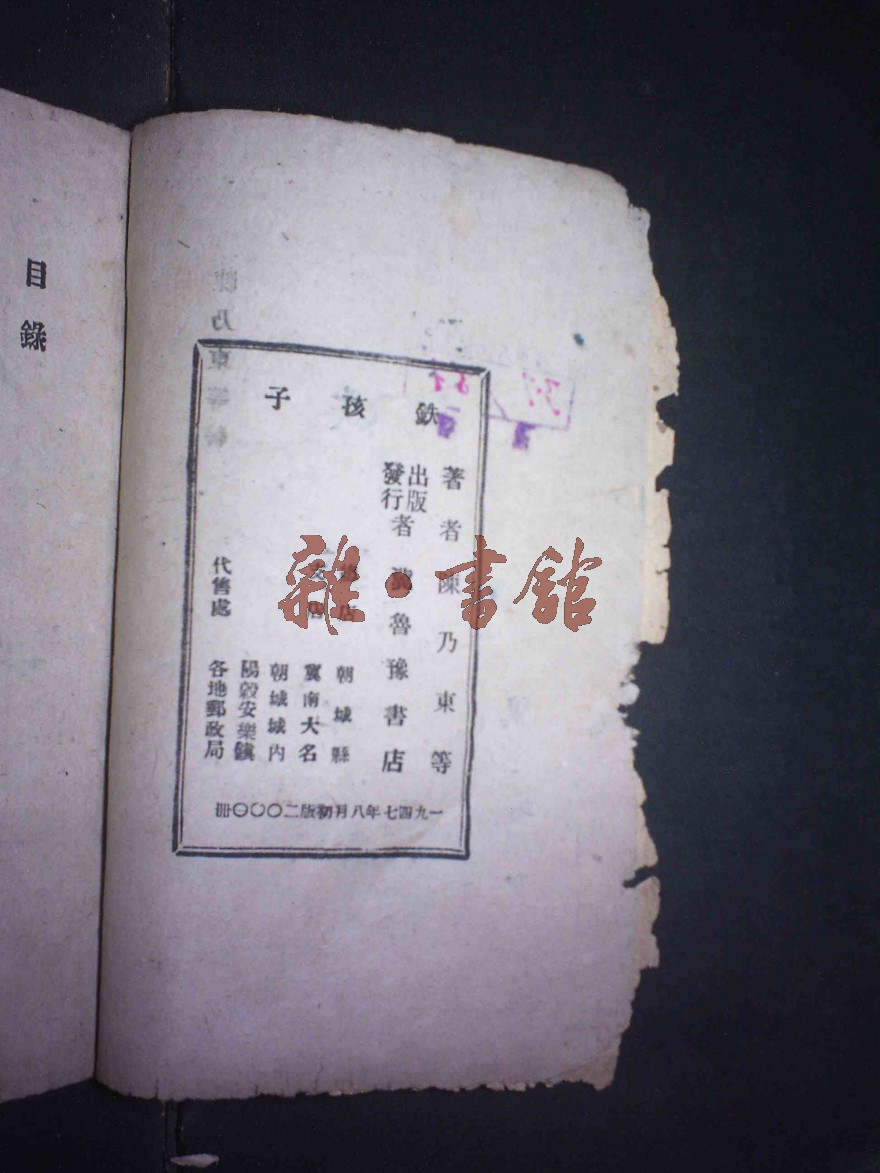 鉄孩子
著者 陳乃東等
出版
發行者 冀魯豫書店
總店 朝城縣
支店 冀南大名
朝城城内
陽穀安樂鎮
代售處 各地郵政局
一九四七年八月初版二〇〇〇冊
目錄
雜·書館